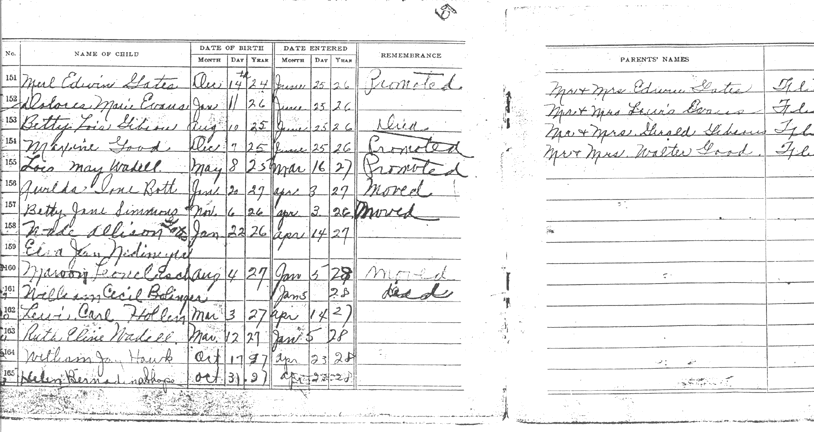 No. NAME OF CHILD DATE OF BIRTH DATE ENTERED REMEMBRANCE PARENTS' NAMES
MONTH DAY YEAR MONTH DAY YEAR
151 Merl Edwin Gates Dec 14th 24 June 25 26 Promoted Mr & Mrs Edwin Gates
152 Dolores Marie Evans Jan 11 26 June 25 26 Mr & Mrs Lewis Evans
153 Betty Lois Gibson Aug 10 25 June 25 26 Died Mr & Mrs. Gerald Gibson
154 Maxine Good Dec 7 25 June 25 26 Promoted Mr & Mrs. Walter Good
155 Lois May Wadell May 8 25 Mar 16 27 Promoted
156 Ione Bott Jan 20 27 apr 3 27 Moved
157 Betty Jane Simmons Nov. 6 26 apr 3 26 Moved
158 Wade Allison Jan 22 26 apr 14 27
159 Jean
160 Aug 4 27 Jan 5 28 Moved
161 William Cecil Bolinger Jan 5 28 died
162 Lewis Carl Mar 3 27 apr 14 27
163 Ruth Eline Wadell Mar 12 27 Jan 5 28
164 William Jay Hawk Oct 17 27 apr 23 28
165 Helen Oct 31 27 apr 22 28